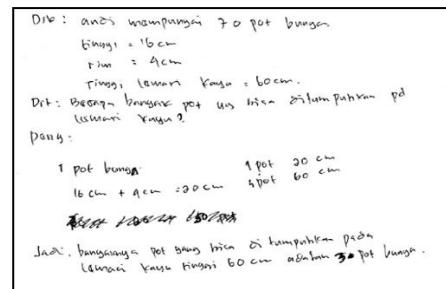 Dik : andi mempunyai 70 pot bunga
tinggi = 16 cm
rim = 4cm
Tinggi lemari kayu = 60 cm.
Dit : Berapa banyak pot yg bisa ditumpuhkan pd
lemari kayu?
Peny :
1 pot bunga 1 pot 20 cm
16 cm + 4 cm = 20 cm 3 pot 60 cm
Jadi, banyaknya pot yang bisa di tumpuhkan pada
lemari kayu tinggi 60 cm adalah 3 pot bunga.